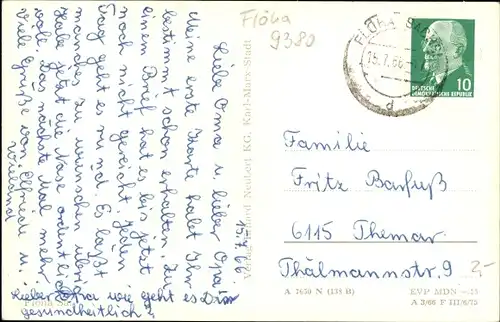 Flöha
9380
Liebe Oma u. lieber Opa!
Meine erste Karte habt Ihr
bestimmt schon erhalten. Zu
einem Brief hat es bis jetzt
noch nicht gereicht. Jeden
Tag geht es rund. Es läßt
manches zu wünschen übrig.
Habe jetzt die Nase ordentlich
voll. Das nächste Mal mehr
Viele Grüße von Elfriede u.
Wieland
15.7.66
Lieber Opa wie geht es Dir
gesundheitlich?
Flöha Sa
KG, Karl-Marx-Stadt
FLÖHA
15.7.66
d
10
DEUTSCHE
DEMOKRATISCHE REPUBLIK
Familie
Fritz Barfuß
6115 Themar
Thälmannstraße 9
2,-
A 1650 N (138 B)
EVP MDN -,15
A 3/66 F III/6/75